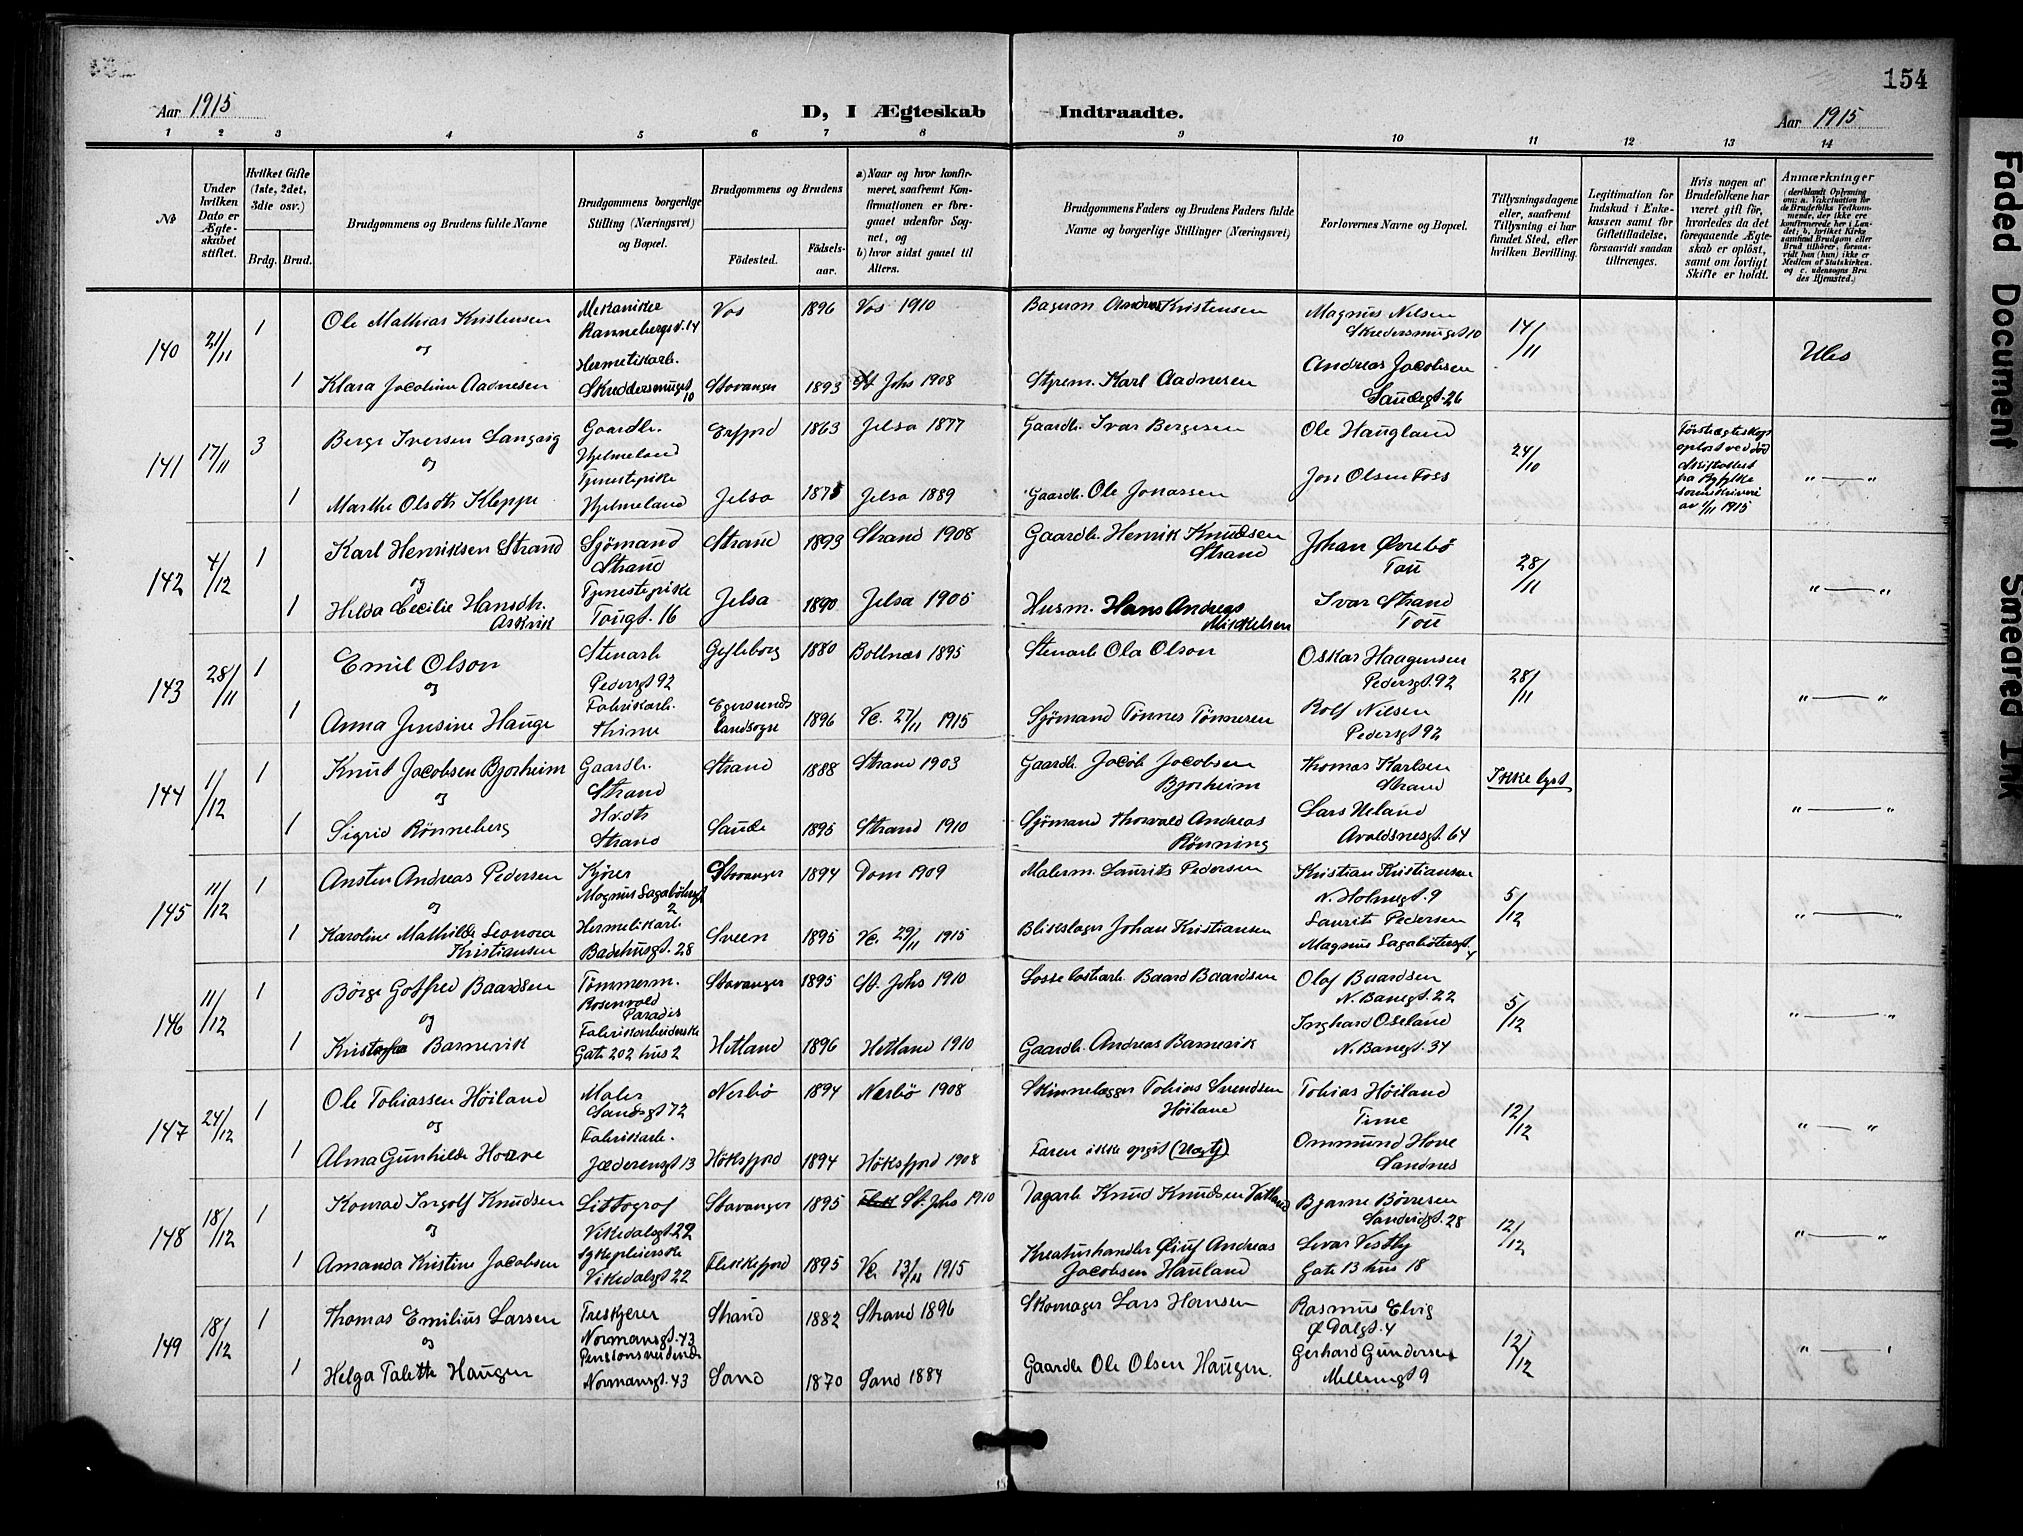 154
Aar 1915
D, I Ægteskab Indtraadte.
Aar 1915
1 2 3 4 5 6 7 8 9 10 11 12 13 14
№
Under hvilken Dato er Ægteskabet stiftet.
Hvilket Gifte (1ste, 2det, 3die osv.)
Brdg. Brud.
Brudgommens og Brudens fulde Navne
Brudgommens borgerlige Stilling (Næringsvei) og Bopæl.
Brudgommens og Brudens
Fødested.
Fødselsaar.
a) Naar og hvor konfirmeret, saafremt Konfirmationen er foregaaet udenfor Sognet, og
b) hvor sidst gaaet til Alters.
Brudgommens Faders og Brudens Faders fulde Navne og borgerlige Stillinger (Næringsvei)
Forlovernes Navne og Bopæl.
Tillysningsdagene eller, saafremt Tillysning ei har fundet Sted, efter hvilken Bevilling.
Legitimation for Indskud i Enkekassen samt for Giftetilladelse, forsaavidt saadan tiltrænges.
Hvis nogen af Brudefolkene har været gift før, hvorledes da det foregaaende Ægteskab er opløst, samt om lovligt Skifte er holdt.
Anmærkninger
140 21/11 1 Ole Mathias Kristensen Mekaniker Vos 1896 Vos 1910 Bagerm. Andreas Kristensen Magnus Nilsen 14/11
Rannebergsd. 14 Skredersmuget 10
og Hermetikarb. Andreas Jacobsen Ules
1 Klara Jacobine Aadnesen Skreddersmuget 10 Stavanger 1893 St Johs 1908 Styrem. Karl Aadnesen Saudegt. 26
141 17/11 3 Berge Iversen Langvig Gaardb. Erfjord 1863 Jelsa 1877 Gaardb. Ivar Bergesen Ole Haugland 24/10
og Hjelmeland
Tjenestepike Jon Olsen Foss
1 Marthe Olsdtr Kleppe Hjelmeland Jelsa 1875 Jelsa 1889 Gaardb. Ole Jonassen " — "
av 1/11 1915
142 4/12 1 Karl Henriksen Strand Sjømand Strand 1893 Strand 1908 Gaardb. Henrik Knudsen Strand Johan Øvrebø 28/11
og Strand Tau
Tjenestepike
1 Helda Cecilie Hansdtr. Askvik Tougt. 16 Jelsa 1890 Jelsa 1905 Husm. Hans Andreas Mikkelsen Ivar Strand Tou " — "
143 28/11 1 Emil Olson Stenarb Gefleborg 1880 Bollnæs 1895 Stenarb Ola Olson Oskar Haagensen 28/11
og Pedersgt 92 Pedersgt. 92
Fabrikarb. Egersunds Rolf Nilsen
1 Anna Jensine Hauge Thime landsogn 1896 Vc. 27/11 1915 Sjømand Tønnes Tønnesen Pedersgt 92 " — "
144 1/12 1 Knut Jacobsen Bjorheim Gaardb. Strand 1888 Strand 1903 Gaardb. Jacob Jacobsen Bjorheim Thomas Karlsen Ikke lyst
og Strand Strand
1 Sigrid Rönneberg Strand Saude 1895 Strand 1910 Sjømand Thorvald Andreas Rönning Lars Ueland Avaldsnesgt. 64 " — "
145 11/12 1 Ansten Andreas Pedersen Kjører Stavanger 1894 Dom 1909 Malerm. Laurits Pedersen Kristian Kristiansen 5/12
og Magnus Lagabötersgt 2 N. Holmegt. 9
1 Karoline Mathilde Leonora Kristiansen Hermetikarb. Badehusgt. 28 Sveen 1895 Vc. 29/11 1915 Blikslager Johan Kristiansen Laurits Pedersen Magnus Lagabötersgt. 4 " — "
146 11/12 1 Börge Gotfred Baardsen Tømmerm. Stavanger 1895 St. Johs 1910 Losse lastarb. Baard Baardsen Olaf Baardsen 5/12
og Rosenvold Paradis N. Banegt. 22
Fabrikarbeiderske Inghard Oseland
1 Barnevik Gate 202 hus 2 Hetland 1896 Hetland 1910 Gaardb. Andreas Barnevik N. Banegt. 34 " — "
147 24/12 1 Ole Tobiassen Höiland Maler Nærbö 1894 Nærbö 1908 Skinnelægger Tobias Svendsen Höiland Tobias Höiland 12/12
og Sandsgt 72 Time
Fabrikarb. Ommund Hove
1 Alma Gunhilde Hoare Jæderengt 13 Höksfjord 1894 Höksfjord 1908 Faren ikke opgit Sandnes " — "
148 18/12 1 Konrad Ingolf Knudsen Littograf Stavanger 1895 St. Johs 1910 Dagarb Knud Knudsen Vatland Bjarne Börresen 12/12
og Vikedalsgt. 22 Sandvidgt. 28
Sykepleierske Sivar Vestly
1 Amanda Kristine Jacobsen Vikedalsgt 22 Flekkefjord 1895 Vc. 1915 Kreaturhandler Andreas Jacobsen Hauland Gate 13 hus 18 " — "
149 18/12 1 Thomas Emilius Larsen Treskjærer Strand 1882 Strand 1896 Skomager Lars Hansen Rasmus Elvig 12/12
og Normansgt. 43 Ø Dalgt. 4
Gerhard Gundersen
1 Helga Talette Haugen Normansgt. 43 Sand 1870 Sand 1884 Gaardb Ole Olsen Haugen. Mellemgt 9 " — "
Faded Document
Smeared Ink